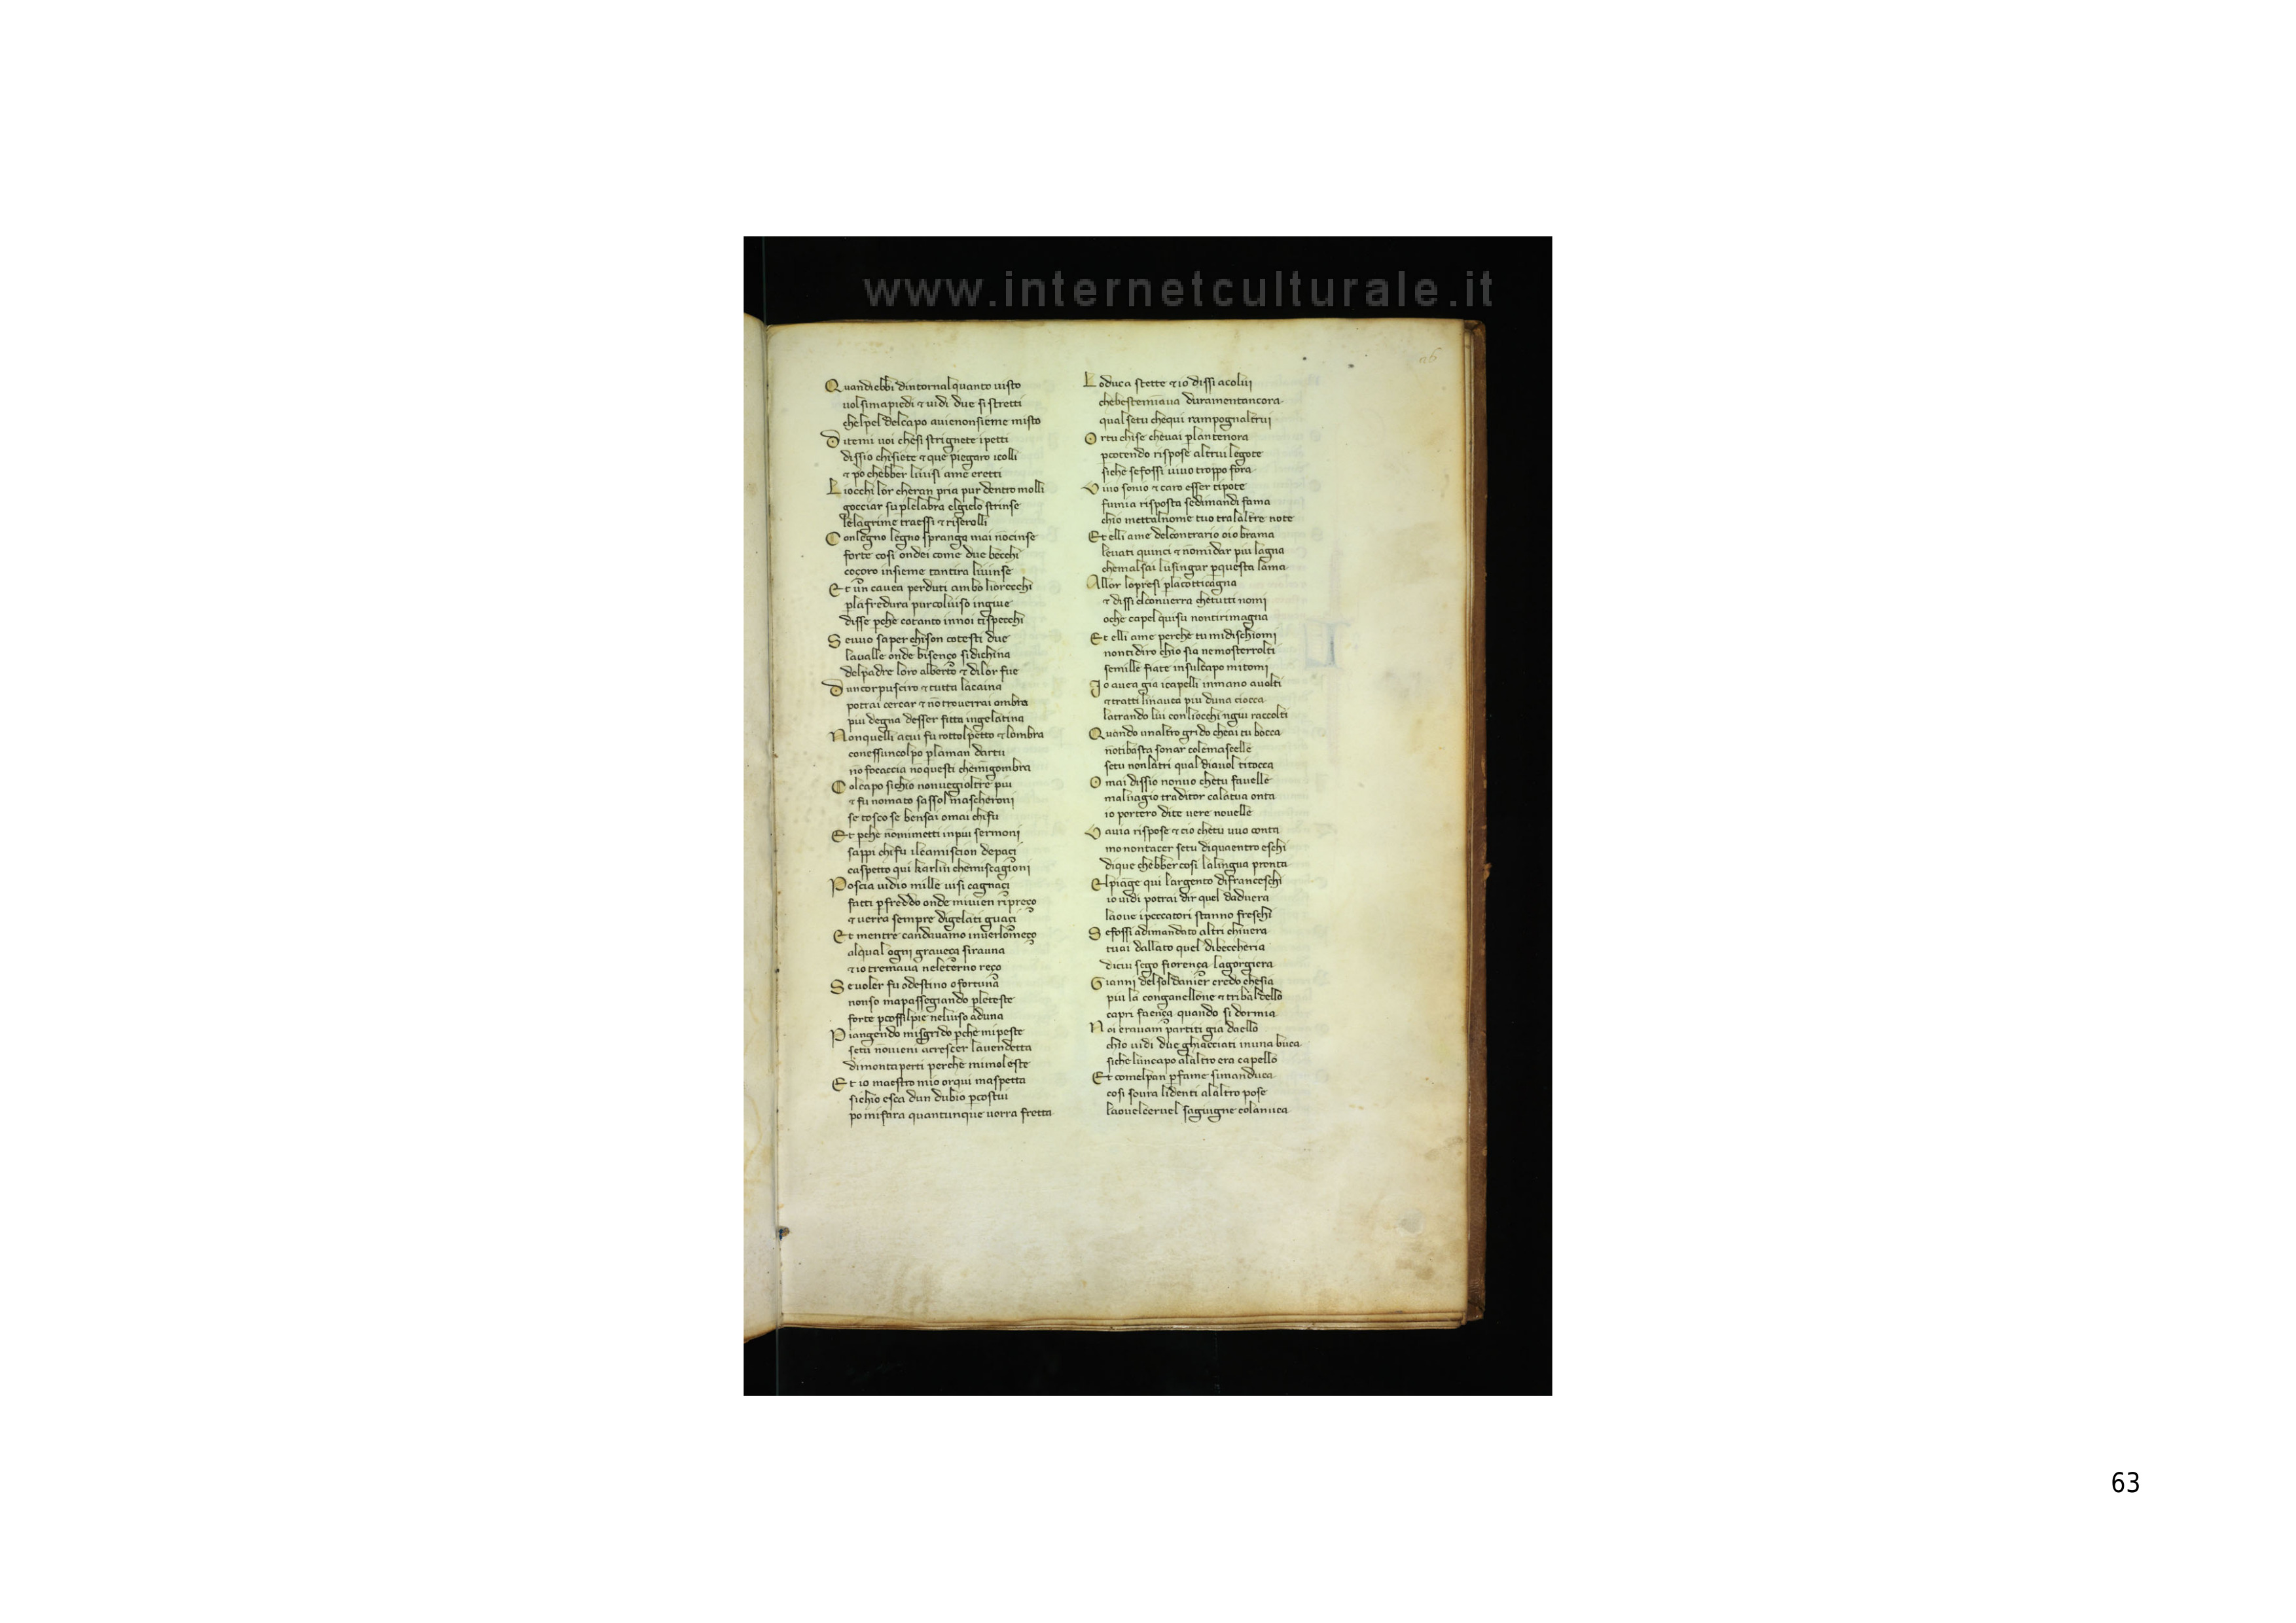 www.internetculturale.it
26
Quandiebbi dintornalquanto uisto
uolsimapiedi ⁊ uidi due sistretti
chelpel delcapo auienonsieme misto
Ditemi uoi chesi strignete ipetti
dissio chisiete ⁊ que piegaro icolli
⁊ po chebber liuisi ame eretti
Liocchi lor cheran pria pur dentro molli
gocciar su plelabra elgielo strinse
lelagrime traessi ⁊ riserolli
Conlegno legno spranga mai nōcinse
forte cosi ondei come due becchi
coçoro insieme tantira liuinse
Et un cauea perduti ambo liorecchi
plafredura purcoluiso ingiue
disse pche cotanto innoi tispecchi
Seuuo saper chison cotesti due
laualle onde bisenço sidichina
delpadre loro alberto ⁊ dilor fue
Duncorpusciro ⁊ tutta lacaina
potrai cercar ⁊ nōtrouerrai ombra
piu degna desser fitta ingelatina
Nonquelli acui fu rottolpetto ⁊ lombra
conessuncolpo plaman dartu
nō focaccia nōquesti chemigombra
Colcapo sichio nonuegioltre piu
⁊ fu nomato sassol mascheroni
se tosco se bensai omai chifu
Et pche nōmimetti inpiu sermoni
sappi chifu ilcamiscion depaçi
⁊aspetto qui karlin chemiscagioni
Poscia uidio mille uisi cagnaçi
fatti pfreddo onde miuien ripreço
⁊ uerra sempre digelati guaçi
Et mentre candauamo inuerlomeço
alqual ogni graueça sirauna
⁊io tremaua neletterno reço
Seuoler fu odestino ofortuna
nonso mapassegiando pleteste
forte pcossilpie neluiso aduna
Piangendo misgrido pche mipeste
setu nōuieni acrescer lauendetta
dimontaperti perche mimoleste
Et io maestro mio orqui maspetta
sichio esca dun dubio pcostui
po mifara quantunque uorra fretta
Loduca stette ⁊ io dissi acolui
chebestemiaua duramentancora
qualsetu chequi rampognaltrui
Ortuchise cheuai plantenora
pcotendo rispose altrui legote
siche sefossi uiuo troppo fora
Viuo sonio ⁊ caro esser tipote
fumia risposta sedimandi fama
chio mettalnome tuo tralaltre note
Et elli ame delcontrario oio brama
leuati quinci ⁊ nōmidar piu lagna
chemalsai lusingar pquesta lama
Allor lopresi placotticagna
⁊ dissi elconuerra chetutti nomi
oche capel quisu nontirimagna
Et elli ame perche tu midischiomi
nontidiro chio sia nemosterrolti
semille fiate insulcapo mitomi
Io auea gia icapelli inmano auolti
⁊tratti linauea piu duna ciocca
latrando lui conliocchi ngiu raccolti
Quando unaltro grido cheai tu bocca
nōtibasta sonar colemascelle
setu nonlatri qual diauol titocca
Omai dissio nonuo chetu fauelle
maluagio traditor calatua onta
io portero dite uere nouelle
Vauia rispose ⁊ cio chetu uuo conta
mo nontacer setu diquaentro eschi
dique chebber cosi lalingua pronta
Elpiāge qui largento difranceschi
io uidi potrai dir quel daduera
laoue ipeccatori stanno freschi
Sefossi adimandato altri chiuera
tuai dallato quel dibeccheria
dicui sego fiorença lagorgiera
Gianni delsoldanier credo chesia
piu la conganellone ⁊ tribaldello
capri faença quando si dormia
Noi erauam partiti gia daello
chio uidi due ghiacciati inuna buca
siche luncapo alaltro era capello
Et comelpan pfame simanduca
cosi soura lidenti alaltro pose
laouelceruel sagiugne colanuca
63